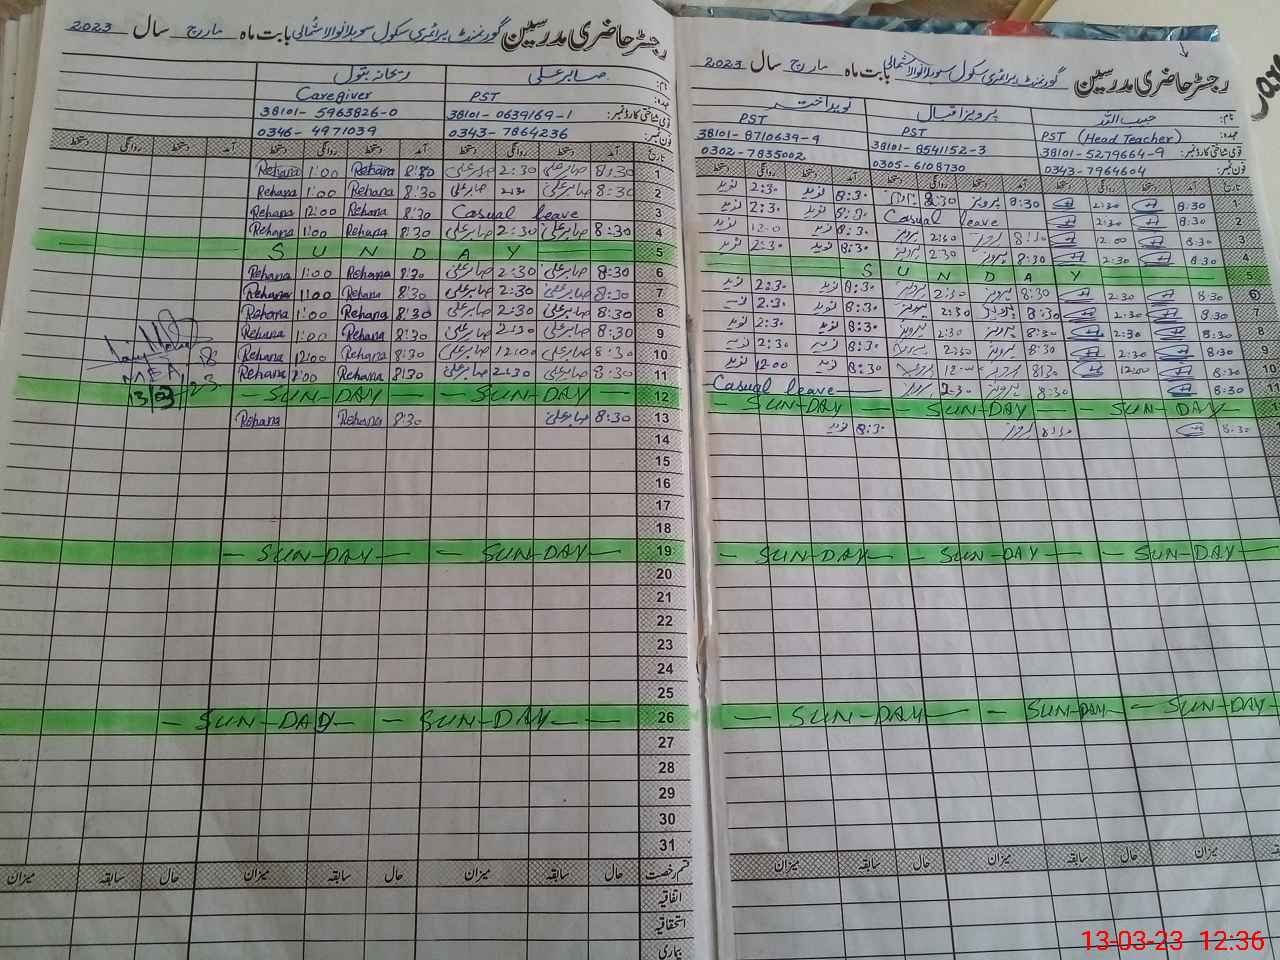 رجسٹر حاضری مدرسین گورنمنٹ پرائمری سکول بابت ماہ مارچ سال 2023
نام: حبیب اللہ پرویز اقبال نوید اختر
عہدہ: PST (Head Teacher) PST PST
قومی شناختی کارڈ نمبر: 38101-5279664-9 38101-8541152-3 38101-8710639-9
فون نمبر: 0343-7964604 0305-6108730 0302-7835002
تاریخ آمد دستخط روانگی دستخط آمد دستخط روانگی دستخط آمد دستخط روانگی دستخط
1 8:30 2:30 8:30 پرویز 8:30 نوید 2:30 نوید
2 8:30 2:30 Casual leave 8:30 نوید 2:30 نوید
3 8:30 12:00 8:30 پرویز 2:30 پرویز 8:30 نوید 12:0 نوید
4 8:30 2:30 8:30 پرویز 2:30 پرویز 8:30 نوید 2:30 نوید
5 SUNDAY
6 8:30 2:30 8:30 پرویز 2:30 پرویز 8:30 نوید 2:30 نوید
7 8:30 2:30 8:30 پرویز 2:30 پرویز 8:30 نوید 2:30 نوید
8 8:30 2:30 8:30 پرویز 2:30 پرویز 8:30 نوید 2:30 نوید
9 8:30 2:30 8:30 پرویز 2:30 پرویز 8:30 نوید 2:30 نوید
10 8:30 12:00 8:30 پرویز 12:00 پرویز 8:30 نوید 12:00 نوید
8:30 8:30 2:30 پرویز Casual leave
SUN-DAY SUN-DAY SUN-DAY
8:30 8:30 پرویز 8:30 نوید
SUN-DAY SUN-DAY SUN-DAY
SUN-DAY SUN-DAY SUN-DAY
میزان حال سابقہ میزان حال سابقہ میزان
رجسٹر حاضری مدرسین گورنمنٹ پرائمری سکول بابت ماہ مارچ سال 2023
نام: صابر علی ریحانہ بتول
عہدہ: PST Caregiver
قومی شناختی کارڈ نمبر: 38101-0639169-1 38101-5963826-0
فون نمبر: 0343-7864236 0346-4971039
تاریخ آمد دستخط روانگی دستخط آمد دستخط روانگی دستخط آمد دستخط روانگی دستخط
1 8:30 صابر علی 2:30 صابر علی 8:30 Rehana 1:00 Rehana
2 8:30 صابر علی 2:30 صابر علی 8:30 Rehana 1:00 Rehana
3 Casual leave 8:30 Rehana 12:00 Rehana
4 8:30 صابر علی 2:30 صابر علی 8:30 Rehana 1:00 Rehana
5 SUNDAY
6 8:30 صابر علی 2:30 صابر علی 8:30 Rehana 1:00 Rehana
7 8:30 صابر علی 2:30 صابر علی 8:30 Rehana 1:00 Rehana
8 8:30 صابر علی 2:30 صابر علی 8:30 Rehana 1:00 Rehana
9 8:30 صابر علی 2:30 صابر علی 8:30 Rehana 1:00 Rehana
10 8:30 صابر علی 12:00 صابر علی 8:30 Rehana 12:00 Rehana
11 8:30 صابر علی 2:30 صابر علی 8:30 Rehana 1:00 Rehana
MEA
13/03/23
12 SUN-DAY SUN-DAY
13 8:30 صابر علی 8:30 Rehana Rehana
14
15
16
17
18
19 SUN-DAY SUN-DAY
20
21
22
23
24
25
26 SUN-DAY SUN-DAY
27
28
29
30
31
قسم رخصت حال سابقہ میزان حال سابقہ میزان حال سابقہ میزان
اتفاقیہ
استحقاقیہ
بیماری
13-03-23 12:36